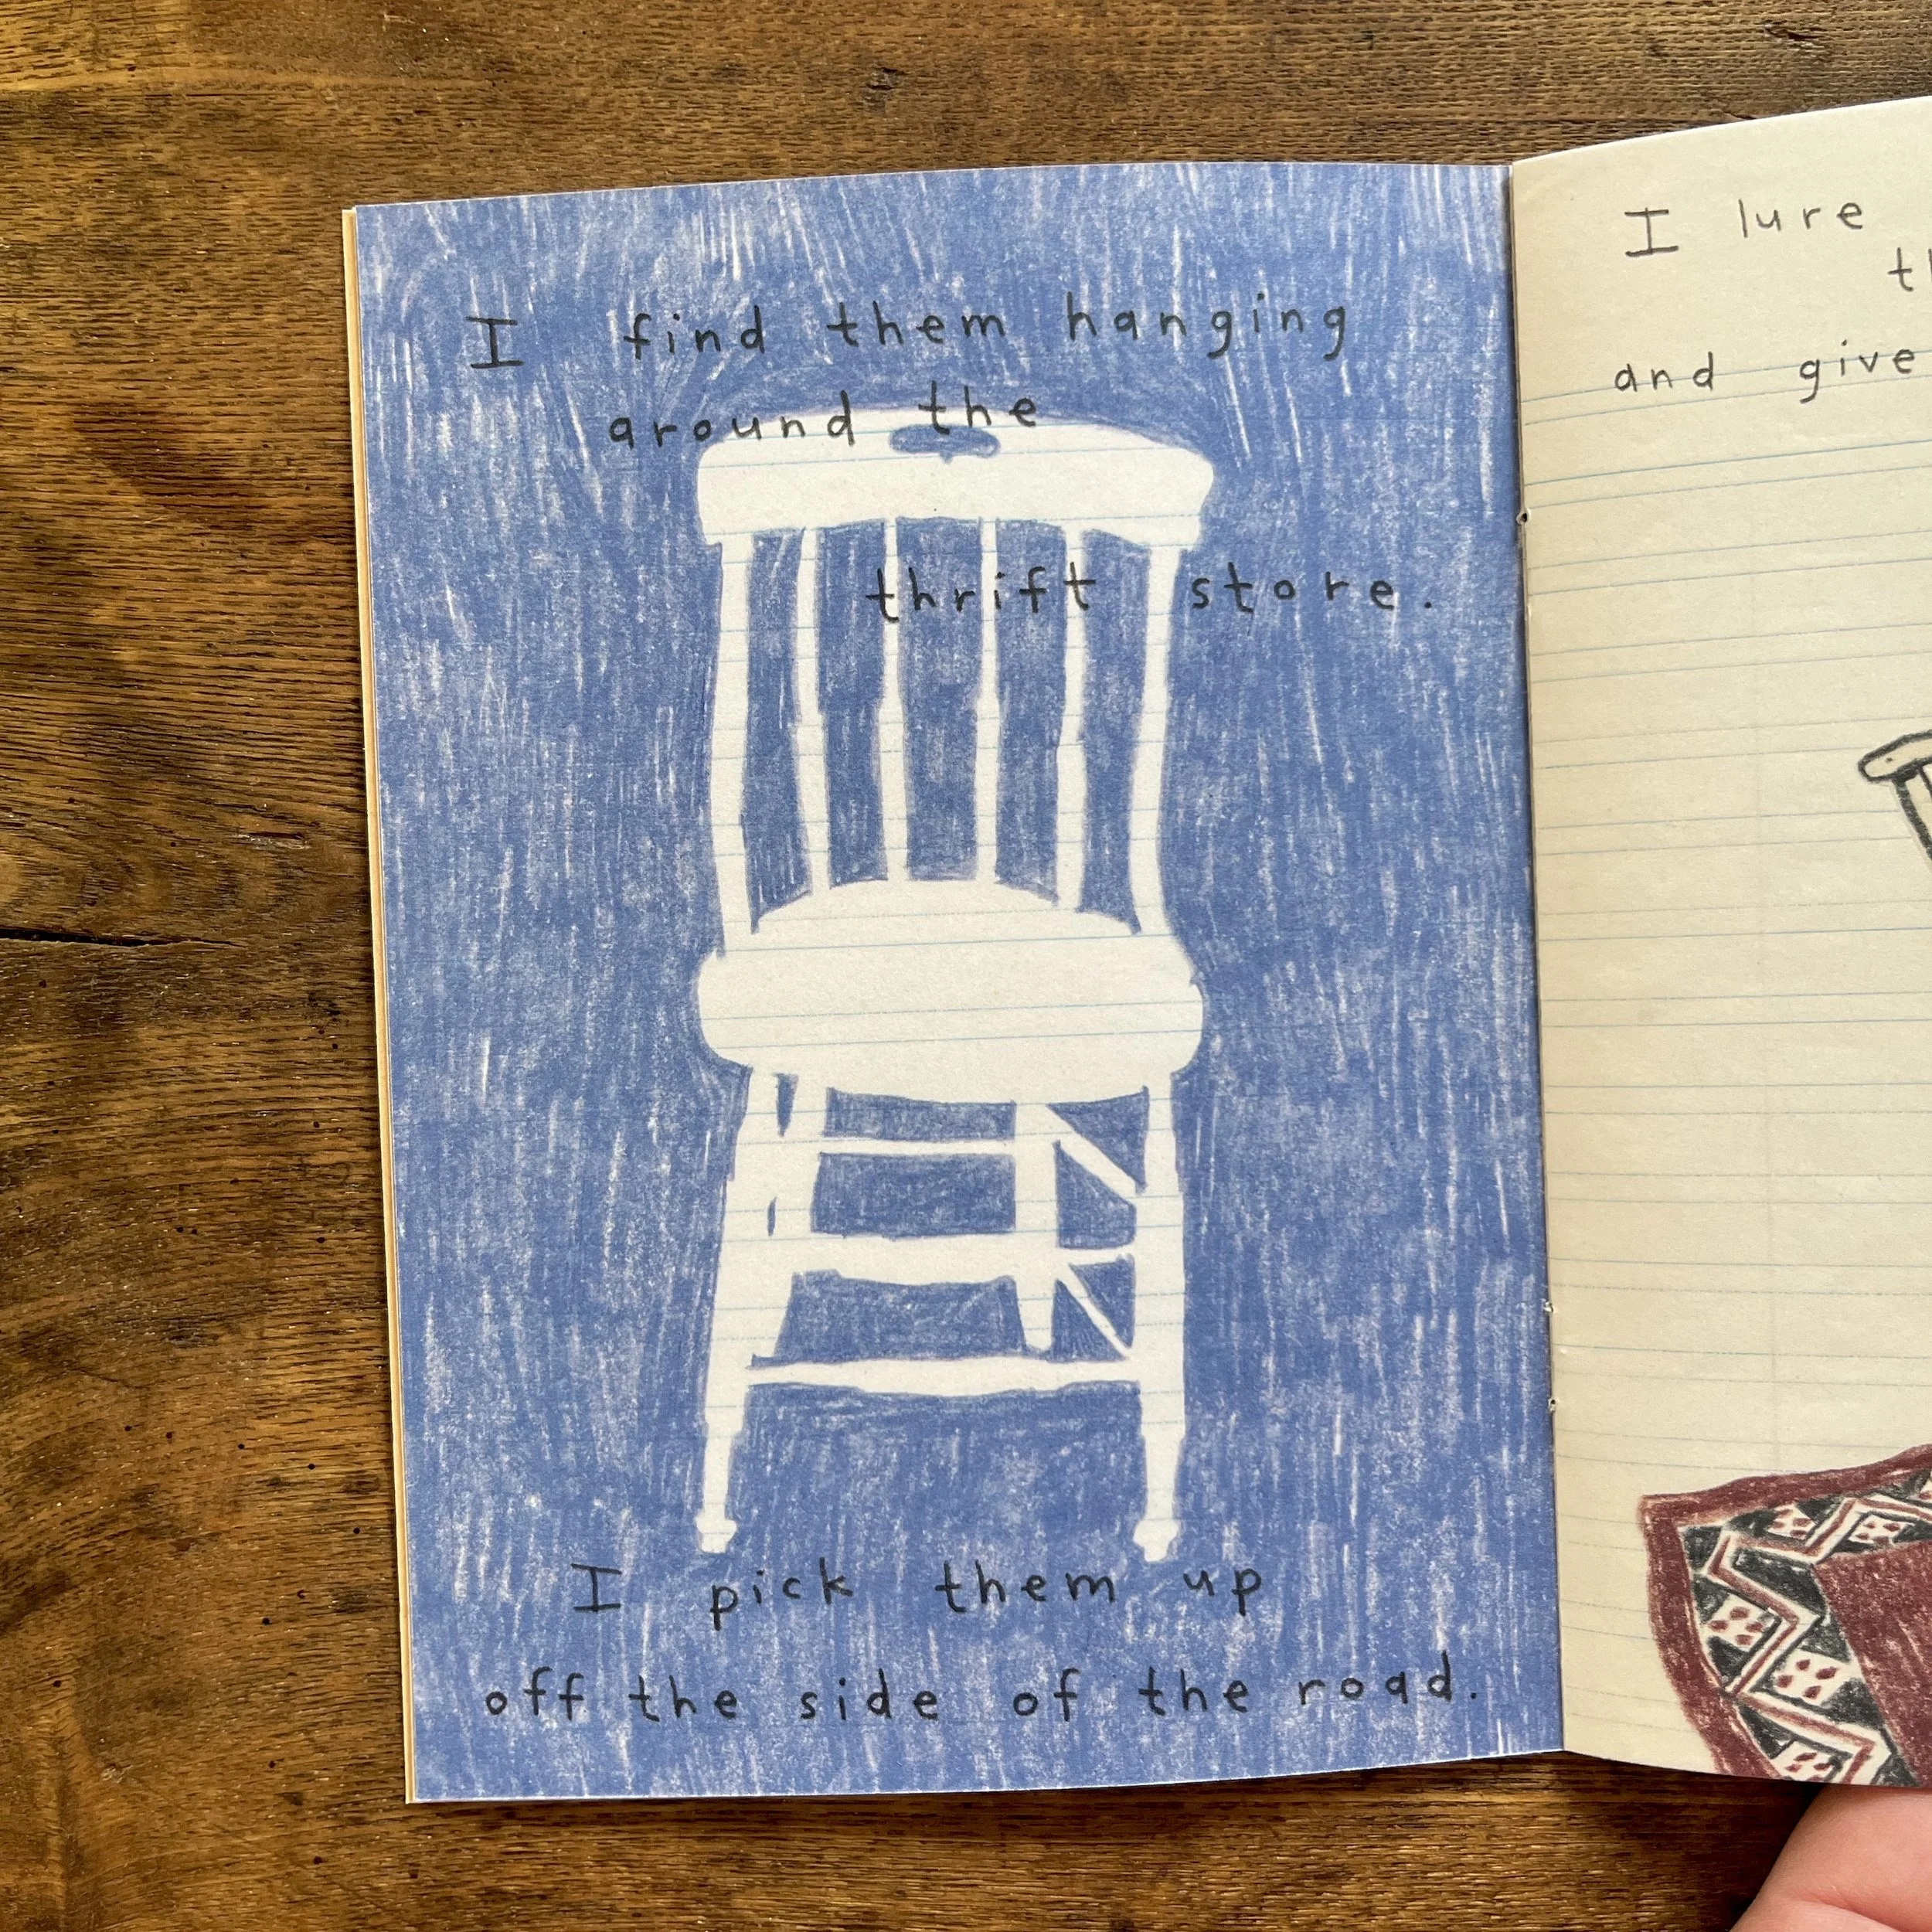 I find them hanging
around the
thrift store.
I pick them up
off the side of the road.
I lure
and give